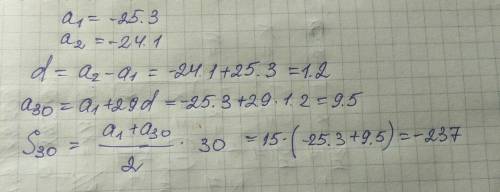 a₁ = -25.3
a₂ = -24.1
d = a₂ - a₁ = -24.1 + 25.3 = 1.2
a₃₀ = a₁ + 29d = -25.3 + 29 · 1.2 = 9.5
S₃₀ = (a₁ + a₃₀)/2 · 30 = 15 · (-25.3 + 9.5) = -237